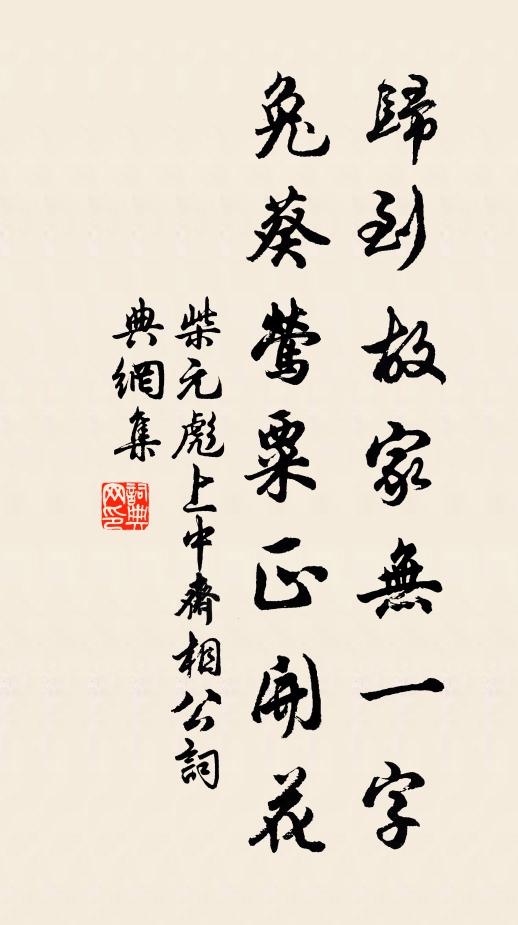 歸到故家無一字
兔葵鶯粟正開花
柴元彪上中齋相公詞
典網集
詞典网印